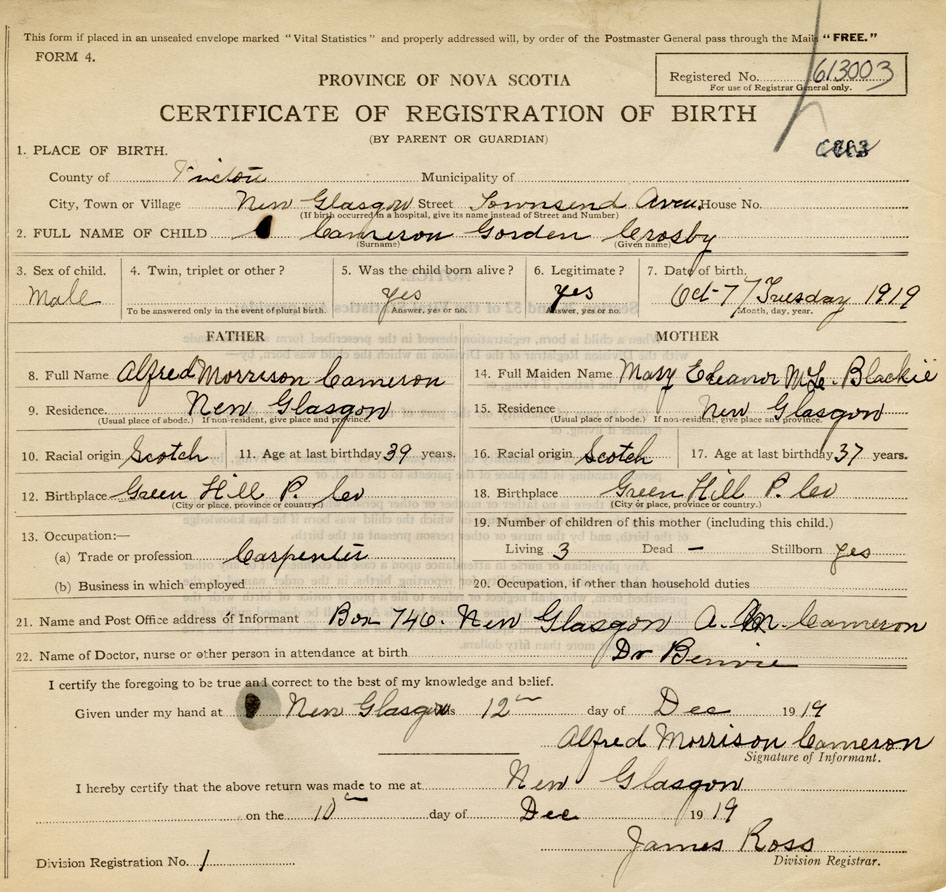 This form if placed in an unsealed envelope marked "Vital Statistics" and properly addressed will, by order of the Postmaster General pass through the Mails "FREE."
FORM 4.
Registered No. 613003
For use of Registrar General only.
PROVINCE OF NOVA SCOTIA
CERTIFICATE OF REGISTRATION OF BIRTH
(BY PARENT OR GUARDIAN)
1. PLACE OF BIRTH.
County of Pictou Municipality of
City, Town or Village New Glasgow Street Townsend Aven. House No.
(If birth occurred in a hospital, give its name instead of Street and Number)
2. FULL NAME OF CHILD Cameron Gorden Crosby
(Surname) (Given name)
3. Sex of child. 4. Twin, triplet or other? 5. Was the child born alive? 6. Legitimate? 7. Date of birth.
Male yes yes Oct-7 / Tuesday 1919
To be answered only in the event of plural birth. Answer, yes or no. Answer, yes or no. Month, day, year.
FATHER MOTHER
8. Full Name Alfred Morrison Cameron 14. Full Maiden Name Mary Eleanor McL. Blackie
9. Residence New Glasgow 15. Residence New Glasgow
(Usual place of abode.) If non-resident, give place and province. (Usual place of abode.) If non-resident, give place and province.
10. Racial origin Scotch 11. Age at last birthday 39 years. 16. Racial origin Scotch 17. Age at last birthday 37 years.
12. Birthplace Green Hill P. Co 18. Birthplace Green Hill P. Co
(City or place, province or country.) (City or place, province or country.)
13. Occupation:— 19. Number of children of this mother (including this child.)
(a) Trade or profession Carpenter Living 3 Dead — Stillborn yes
(b) Business in which employed 20. Occupation, if other than household duties
21. Name and Post Office address of Informant Box 746. New Glasgow A. M. Cameron
22. Name of Doctor, nurse or other person in attendance at birth Dr Benvie
I certify the foregoing to be true and correct to the best of my knowledge and belief.
Given under my hand at New Glasgow this 12 day of Dec 1919
Alfred Morrison Cameron
Signature of Informant.
I hereby certify that the above return was made to me at New Glasgow
on the 10 day of Dec 1919
James Ross
Division Registration No. 1 Division Registrar.